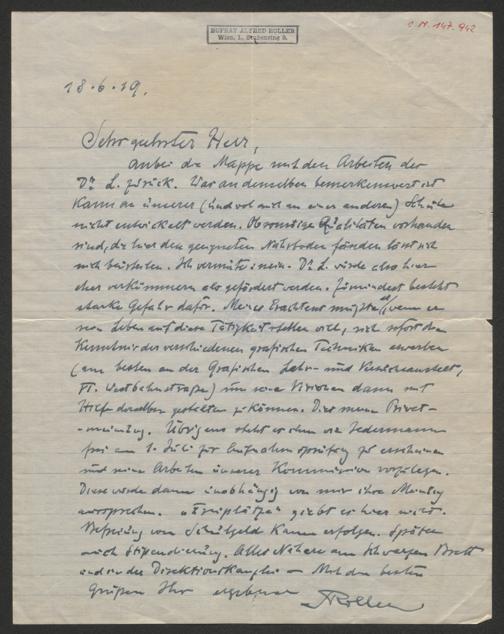 HOFRAT ALFRED ROLLER
Wien, I. Stubenring 3.
C.N. 147.942
18.6.19.
Sehr geehrter Herr,
anbei die Mappe mit den Arbeiten des
Dr. L. zurück. Was an demselben bemerkenswert ist
kann an unserer (und wol auch an einer anderen) Schule
nicht entwickelt werden. Ob sonstige Qualitäten vorhanden
sind, die hier den geeigneten Nährboden fänden lässt sich
nicht beurteilen. Ich vermute: nein. Dr. L. würde also hier
eher verkümmern als gefördert werden. Zumindest besteht
starke Gefahr dafür. Meines Erachtens müsste er, wenn er
sein Leben auf diese Tätigkeit stellen will, sich sofort die
Kenntnis der verschiedenen grafischen Techniken erwerben
(am besten an der Grafischen Lehr- und Versuchsanstalt,
VII. Westbahnstrasse) um seine Visionen dann mit
Hilfe derselben gestalten zu können. Dies meine Privat-
-meinung. Übrigens steht es ihm wie Jedermann
frei am 1. Juli zur Aufnahmsprüfung zu erscheinen
und seine Arbeiten unserer Kommission vorzulegen.
Diese würde dann unabhängig von mir ihre Meinung
aussprechen. "Freiplätze" giebt es hier nicht.
Befreiung von Schulgeld kann erfolgen. Später
auch Stipendierung. Alles Nähere am schwarzen Brett
und in der Direktionskanzlei — Mit den besten
Grüßen Ihr ergebener
ARoller